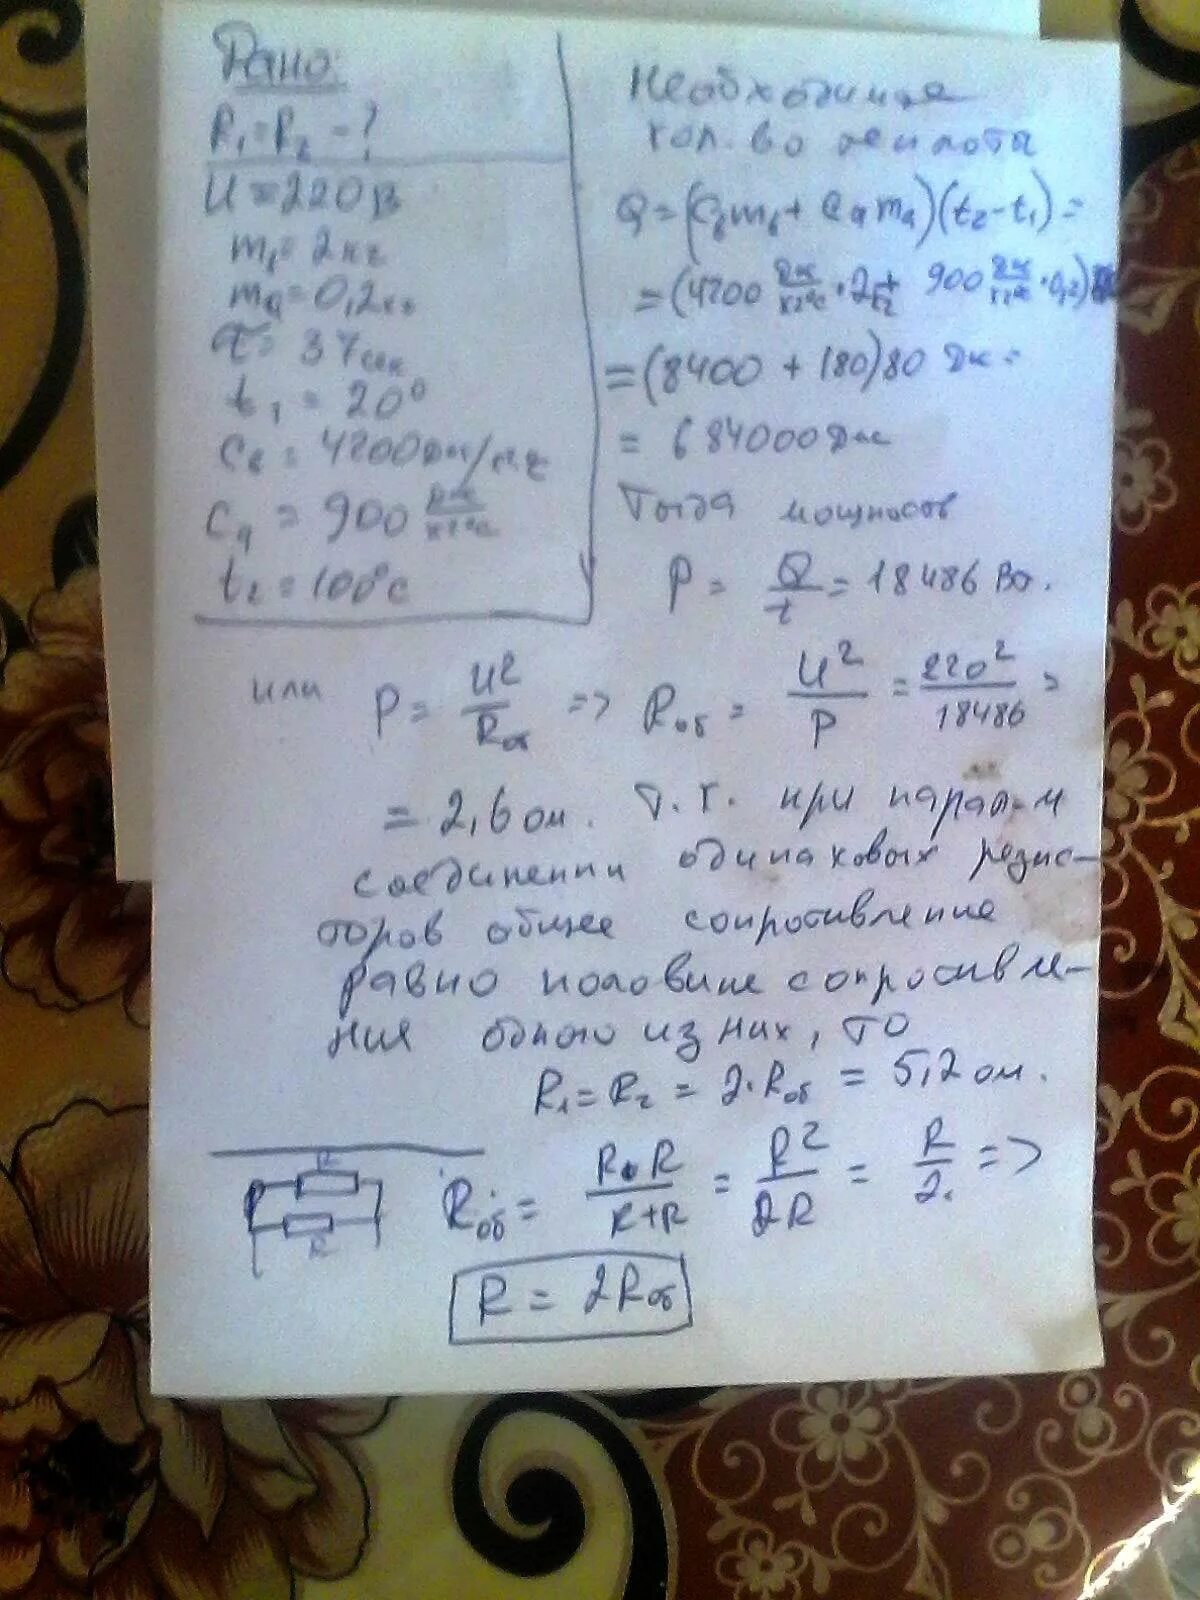 Дано:
R₁=R₂ - ?
U = 220В
m₆= 2 кг
mₐ= 0,2кг
τ = 37сек
t₁ = 20°
c₆ = 4200Дж/кг°C
cₐ = 900 Дж/кг°C
t₂ = 100°C
Необходимое
кол. во теплоты
Q = (C₆m₆ + Cₐmₐ)(t₂-t₁) =
= (4200 Дж/кг°C · 2кг + 900 Дж/кг°C · 0,2)
= (8400 + 180)80 Дж =
= 684000 Дж
Тогда мощность
P = Q/t = 18486 Вт.
или P = U²/Rоб => Rоб = U²/P = 220²/18486 =
= 2,6 ом. Т.к. при парал-м
соединении одинаковых резис-
торов общее сопротивление
равно половине сопротивле-
ния одного из них, то
R₁ = R₂ = 2·Rоб = 5,2 ом.
R
R
Rоб = R·R/R+R = R²/2R = R/2 =>
R = 2Rоб